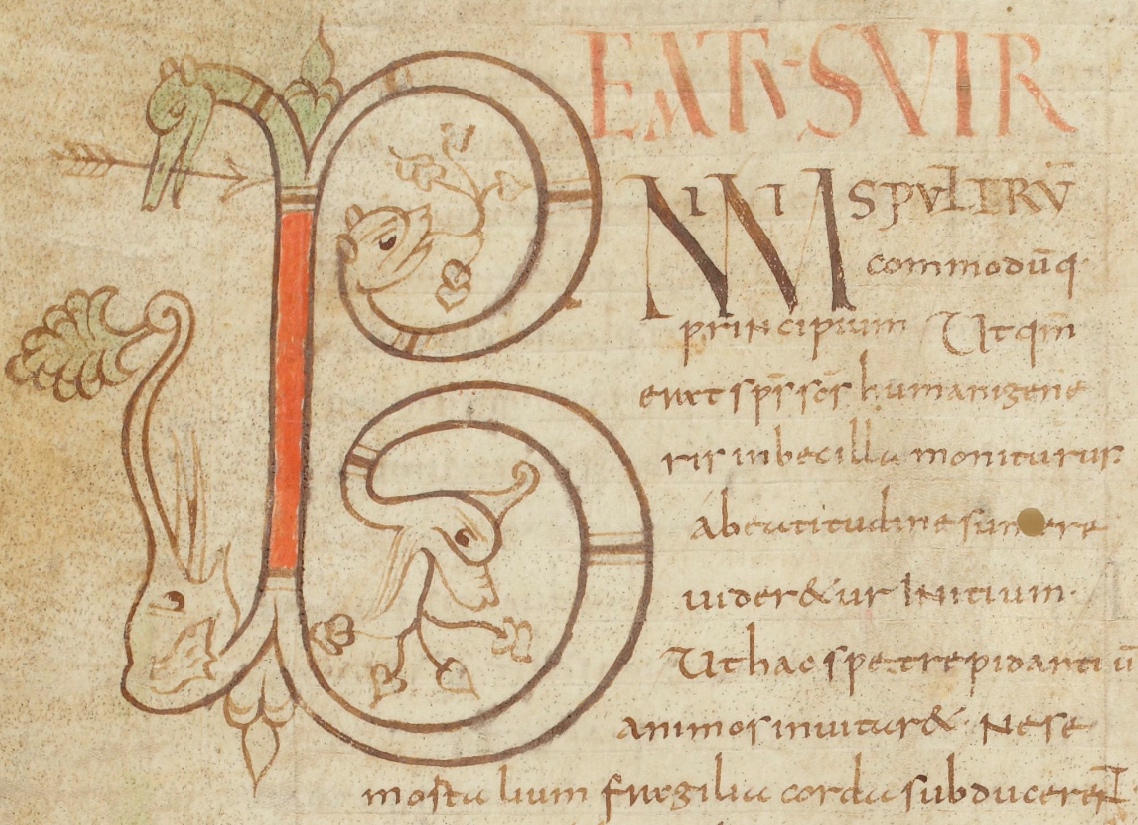 BEATUS VIR
NIMIS PULTRŪ
commodūq·
principium Ut qm̄
erxt sps̄ scs̄ humani gene
ris inbecilla moniturus
abeatitudine sumere
uider& ur Initium·
Ut hac spe trepidantiū
animos inuitar& Ne se
mortalium fragilia corda subducerent·